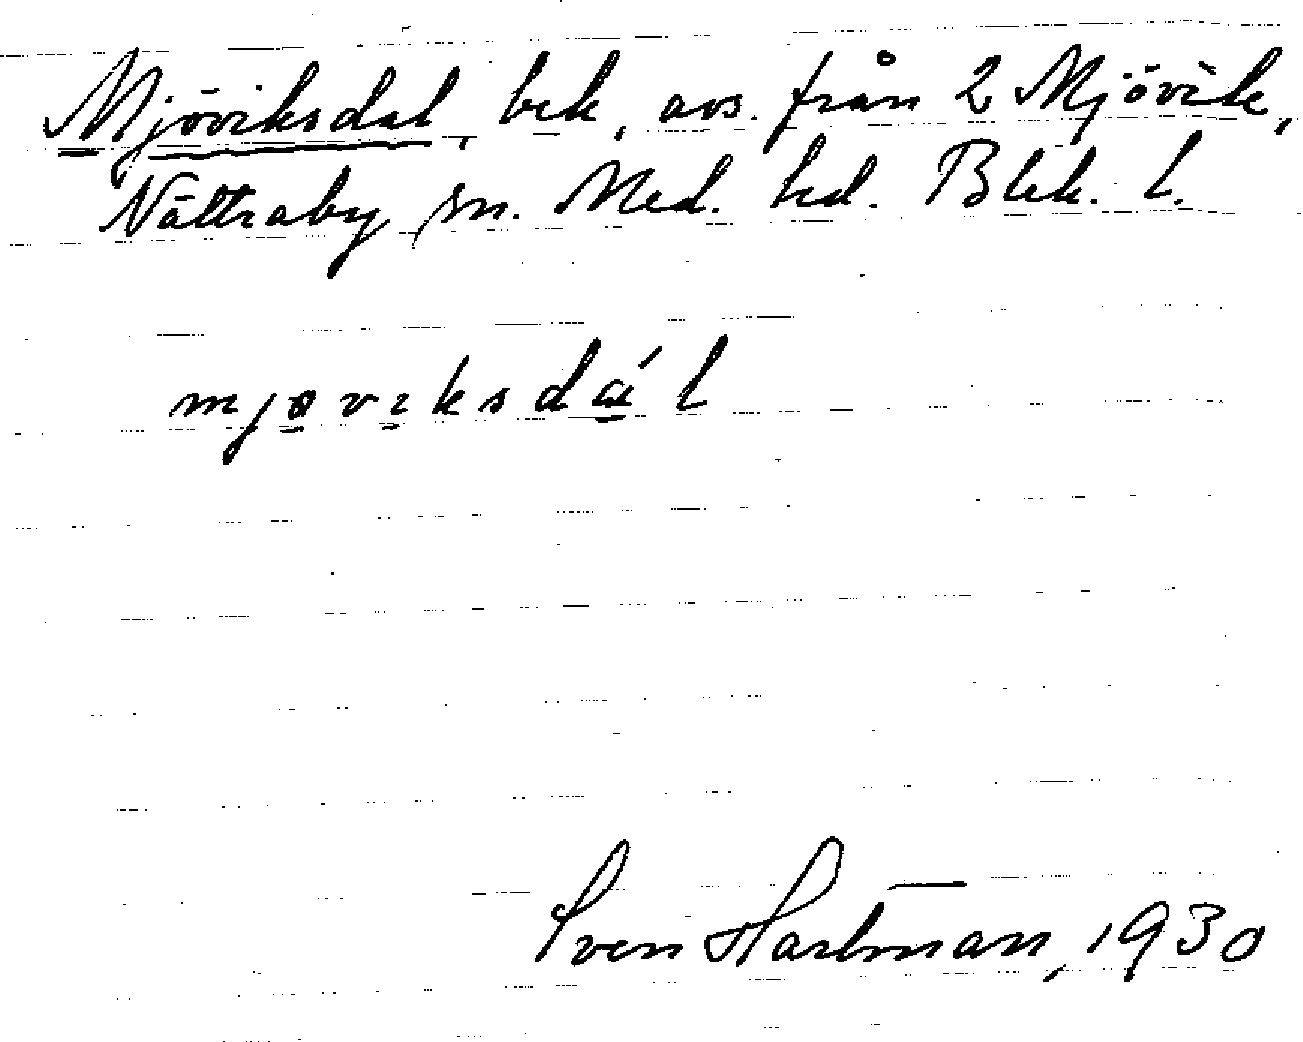 Mjöviksdal, bek, avs. från 2 Mjövik,
Nättraby sn. Med. hd. Blek. l.
mjøviksdál
Sven Hartman, 1930